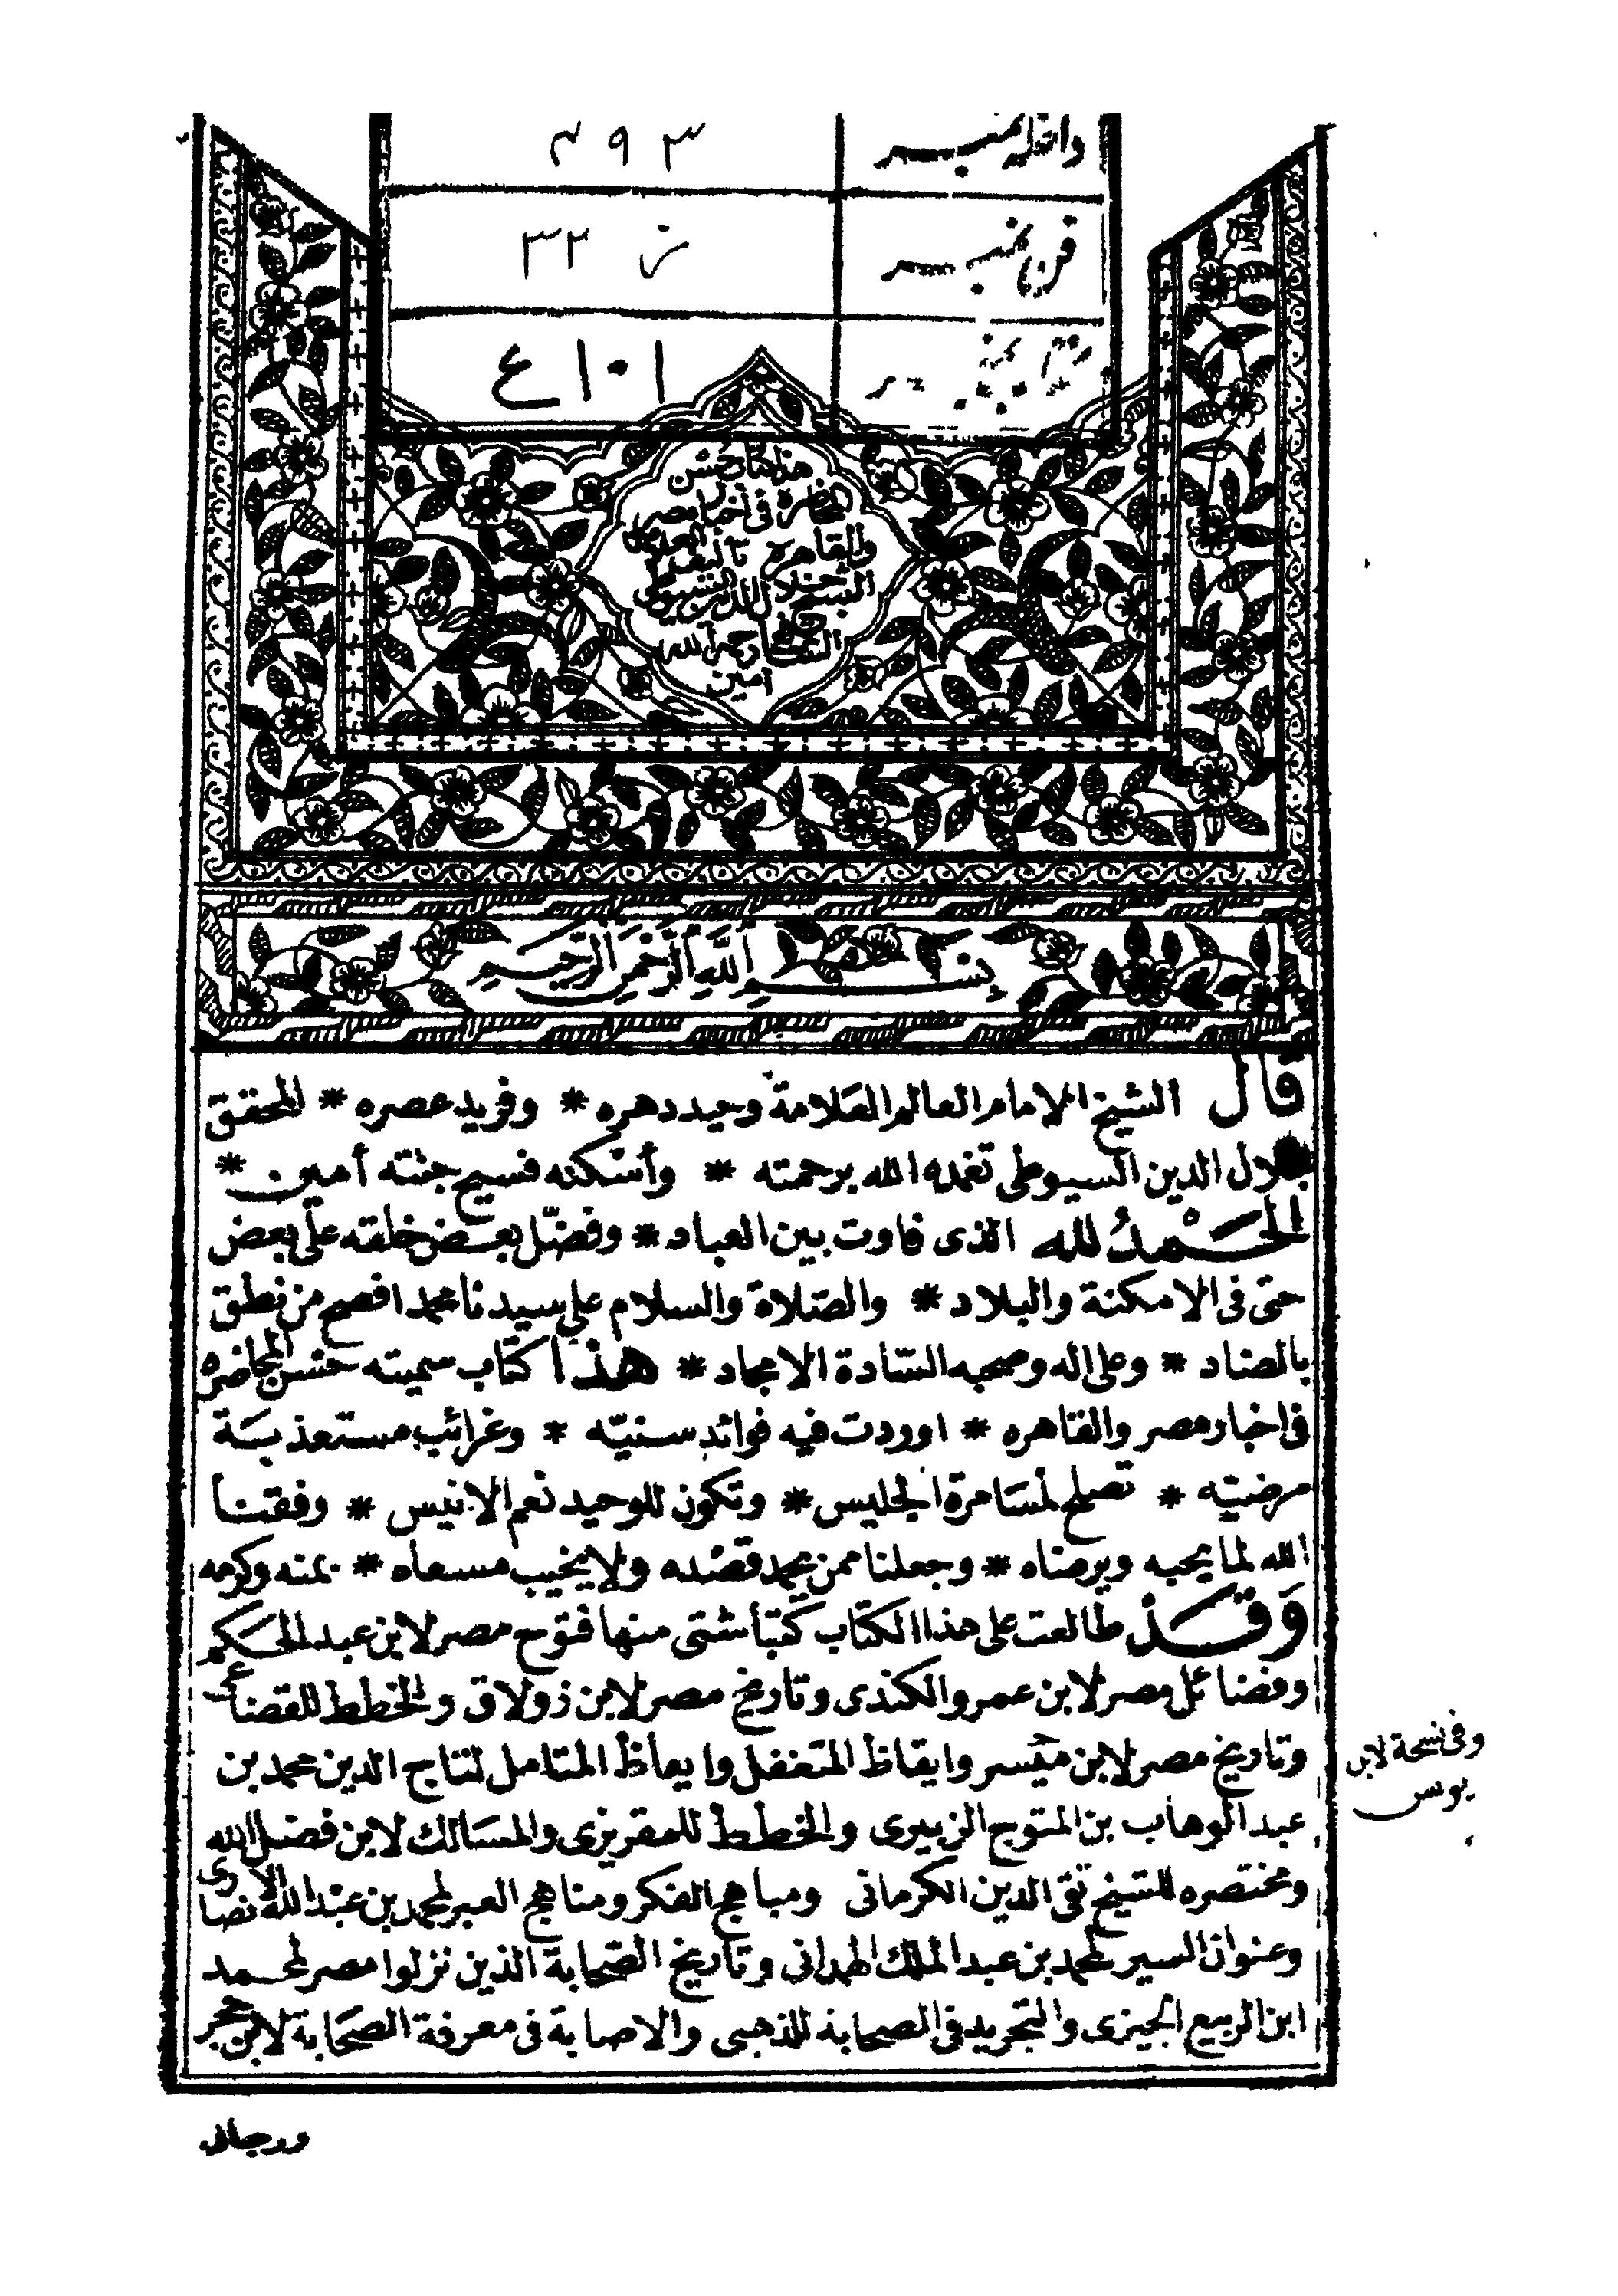 داخله نمبر ٣٩٣
فن نمبر ز ٣٢
١٠١ع
هذا كتاب حسن
المحاضرة في أخبار مصر
والقاهرة تأليف العلامة
الشيخ جلال الدين السيوطي
الشافعي رحمه الله
امين
بسم الله الرحمن الرحيم
قال الشيخ الامام العالم العلامة وحيد دهره * وفريد عصره * المحقق
جلال الدين السيوطى تغمده الله برحمته * وأسكنه فسيح جنته أمين *
الحمدُ لله الذى فاوت بين العباد * وفضّل بعض خلقه على بعض
حتى فى الامكنة والبلاد * والصلاة والسلام على سيدنا محمد افصح من نطق
بالضاد * وعلى اله وصحبه السّادة الامجاد * هذا كتاب سميته حسن المحاضره
فى اخبار مصر والقاهره * اوردت فيه فوائد سنيّه * وغرائب مستعذبة
مرضيّه * تصلح لمسَامرة الجليس * وتكون للوحيد نعم الانيس * وفقنا
الله لما يحبه ويرضاه * وجعلنا ممن يحمد قصده ولا يخيب مسعاه * بمنه وكرمه
وَقَدْ طالعت على هذا الكتاب كتبا شتى منها فتوح مصر لابن عبد الحكم
وفضائل مصر لابن عمر والكندى وتاريخ مصر لابن زولاق والخطط للقضاعى
وتاريخ مصر لابن ميسر وايقاظ المتغفل وايعاظ المتامل لتاج الدين محمد بن
عبد الوهاب بن المتوج الزبيرى والخطط للمقريزى والمسَالك لابن فضل الله
ومختصره للشيخ تقى الدين الكرمانى ومباهج الفكر ومناهج العبر لمحمد بن عبْد الله الانصارى
وعنوان السير لمحمد بن عبد الملك الهمدانى وتاريخ الصّحابة الذين نزلوا مصر لمحمد
ابن الربيع الجيزى والتجريد فى الصحابة للذهبى والاصابة فى معرفة الصحَابة لابن حجر
وفى نسخة لابن
يونس